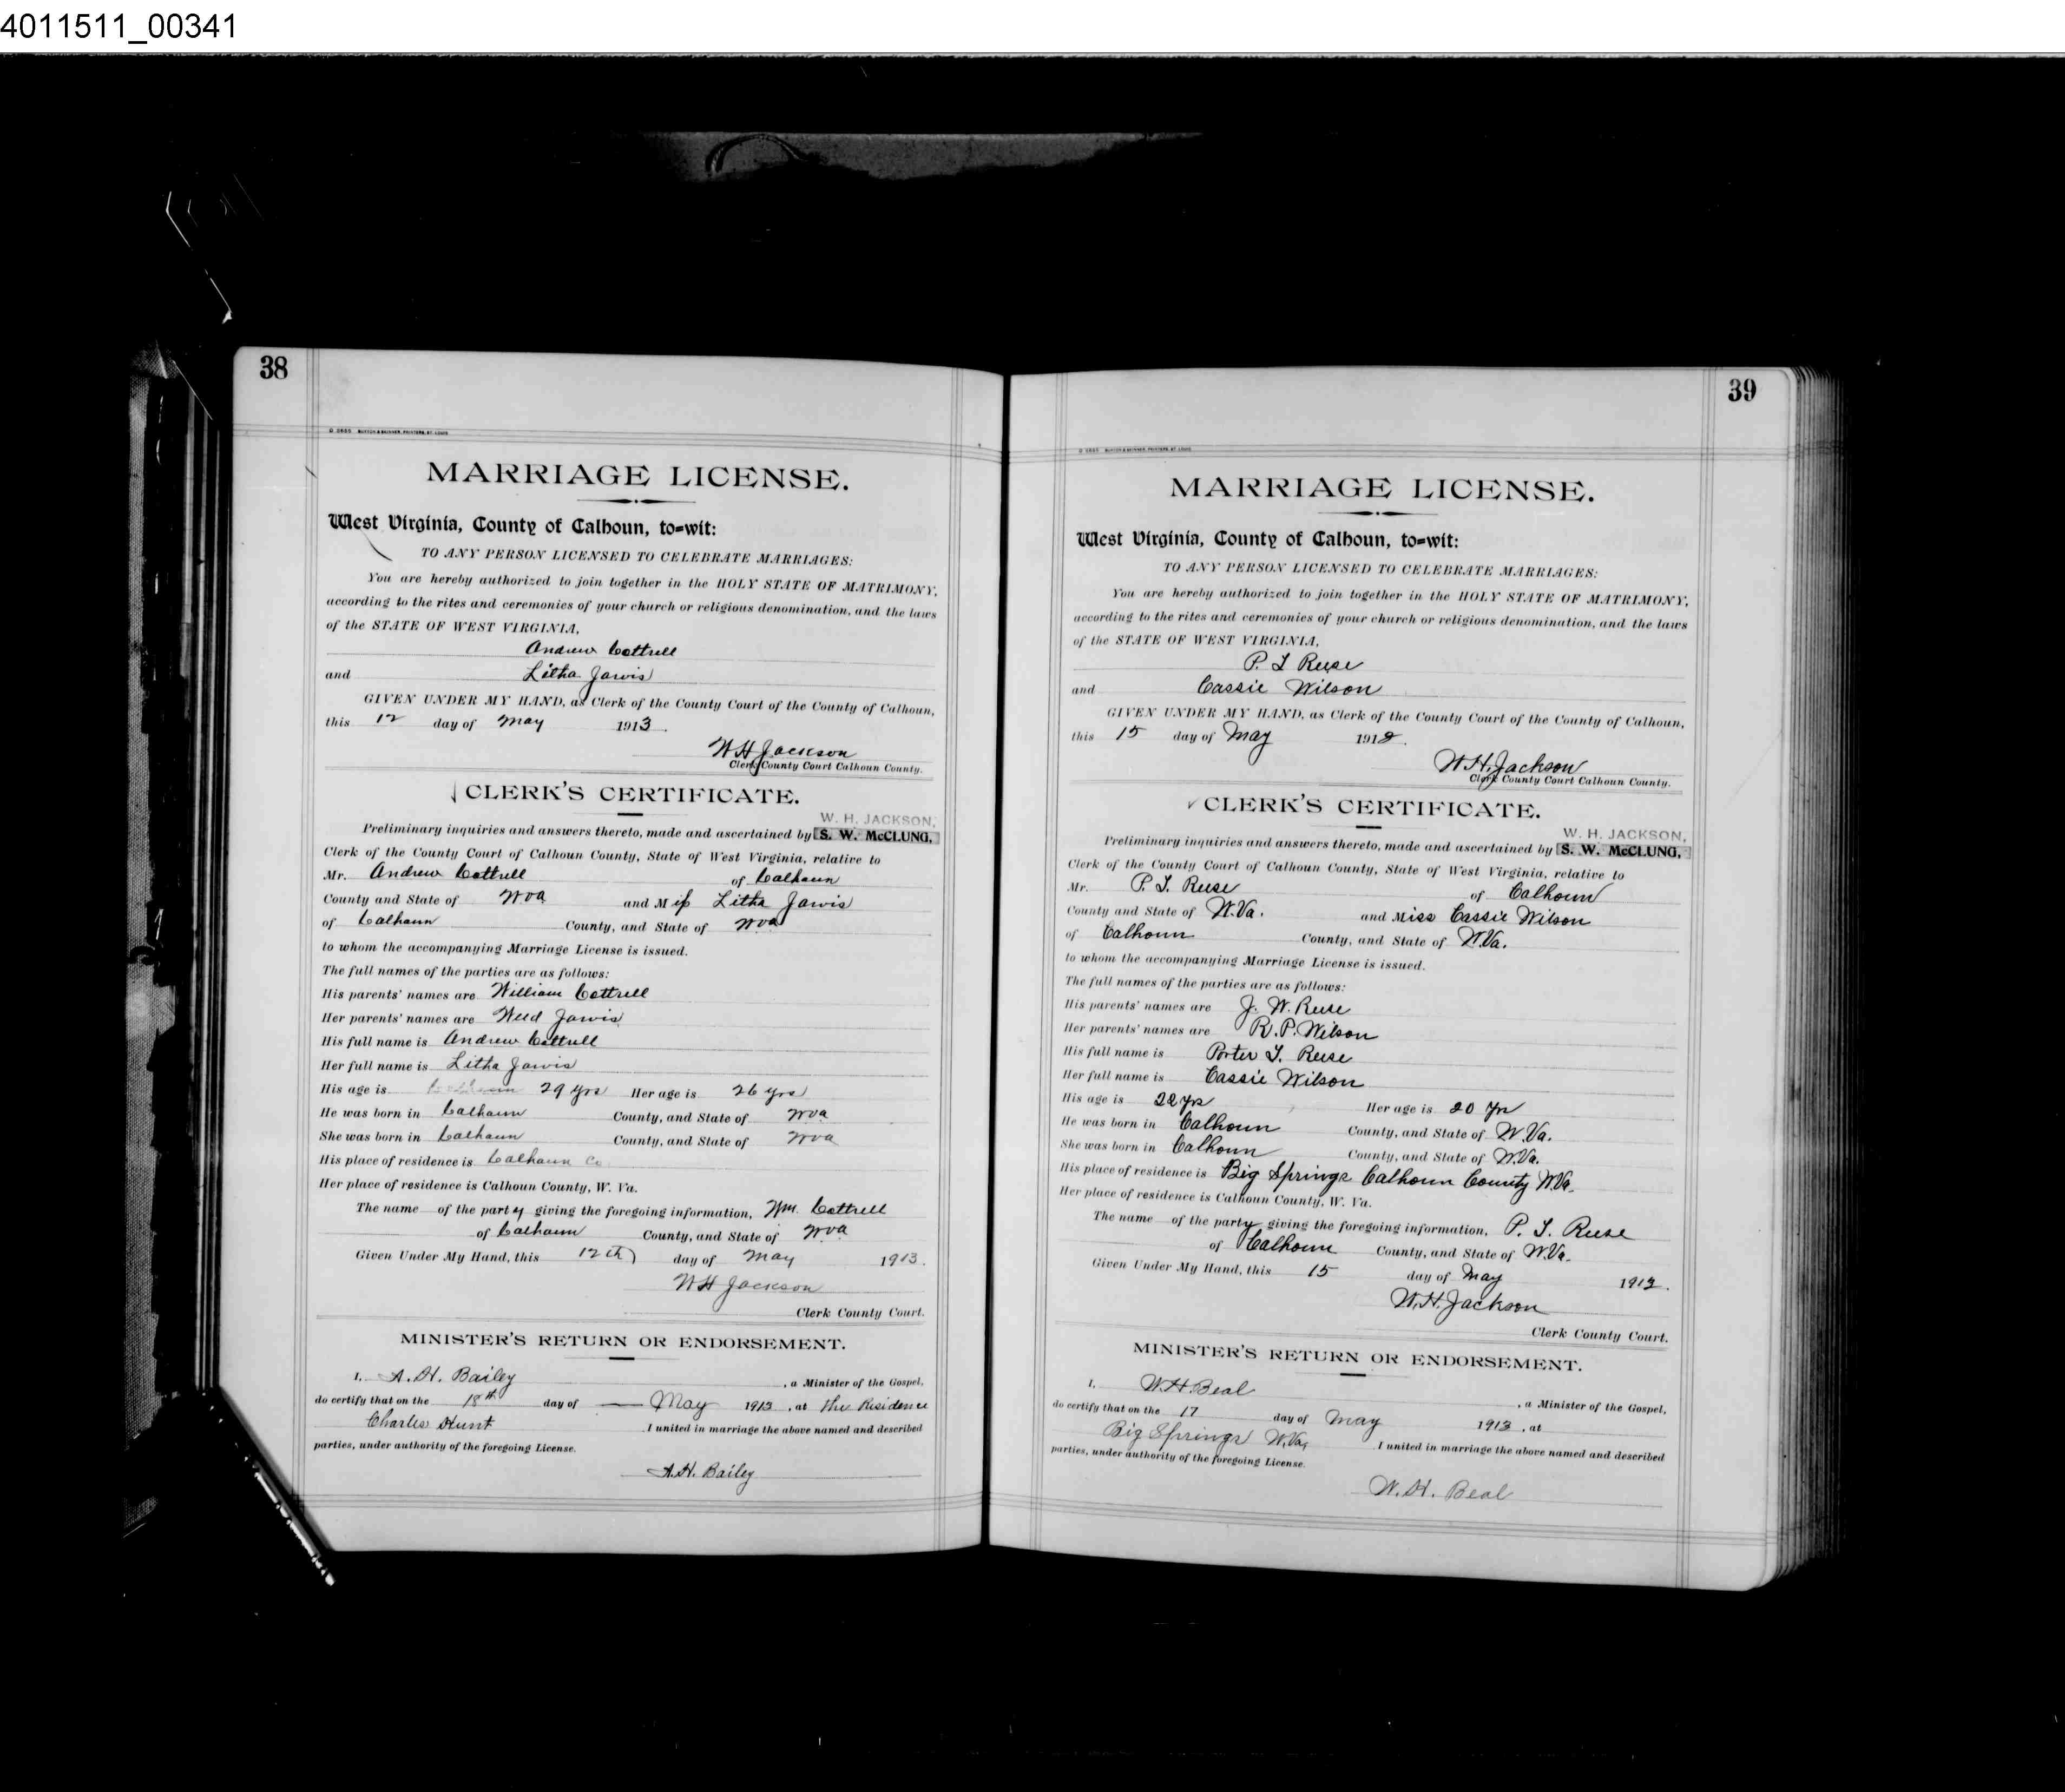 4011511_00341
38
MARRIAGE LICENSE.
West Virginia, County of Calhoun, to=wit:
TO ANY PERSON LICENSED TO CELEBRATE MARRIAGES:
You are hereby authorized to join together in the HOLY STATE OF MATRIMONY,
according to the rites and ceremonies of your church or religious denomination, and the laws
of the STATE OF WEST VIRGINIA,
Andrew Cottrell
and Litha Jarvis
GIVEN UNDER MY HAND, as Clerk of the County Court of the County of Calhoun,
this 12 day of May 1913.
W H Jackson
Clerk County Court Calhoun County.
CLERK'S CERTIFICATE.
W. H. JACKSON,
Preliminary inquiries and answers thereto, made and ascertained by S. W. McCLUNG,
Clerk of the County Court of Calhoun County, State of West Virginia, relative to
Mr. Andrew Cottrell of Calhoun
County and State of W va and Miss Litha Jarvis
of Calhoun County, and State of W va
to whom the accompanying Marriage License is issued.
The full names of the parties are as follows:
His parents' names are William Cottrell
Her parents' names are Weed Jarvis
His full name is Andrew Cottrell
Her full name is Litha Jarvis
His age is 29 yrs Her age is 26 yrs
He was born in Calhoun County, and State of W va
She was born in Calhoun County, and State of W va
His place of residence is Calhoun Co
Her place of residence is Calhoun County, W. Va.
The name of the party giving the foregoing information, Wm. Cottrell
of Calhoun County, and State of W va
Given Under My Hand, this 12th day of May 1913.
W H Jackson
Clerk County Court.
MINISTER'S RETURN OR ENDORSEMENT.
I, A. H. Bailey, a Minister of the Gospel,
do certify that on the 18th day of May 1913, at the Residence
Charles Hunt I united in marriage the above named and described
parties, under authority of the foregoing License.
A. H. Bailey
39
MARRIAGE LICENSE.
West Virginia, County of Calhoun, to=wit:
TO ANY PERSON LICENSED TO CELEBRATE MARRIAGES:
You are hereby authorized to join together in the HOLY STATE OF MATRIMONY,
according to the rites and ceremonies of your church or religious denomination, and the laws
of the STATE OF WEST VIRGINIA,
P. T. Reese
and Cassie Wilson
GIVEN UNDER MY HAND, as Clerk of the County Court of the County of Calhoun,
this 15 day of May
W. H. Jackson
Clerk County Court Calhoun County.
CLERK'S CERTIFICATE.
W. H. JACKSON,
Preliminary inquiries and answers thereto, made and ascertained by S. W. McCLUNG,
Clerk of the County Court of Calhoun County, State of West Virginia, relative to
Mr. P. T. Reese of Calhoun
County and State of W. Va. and Miss Cassie Wilson
of Calhoun County, and State of W. Va.
to whom the accompanying Marriage License is issued.
The full names of the parties are as follows:
His parents' names are J. W. Reese
Her parents' names are R. P. Wilson
His full name is Porter T. Reese
Her full name is Cassie Wilson
His age is 22 yrs Her age is 20 Yrs
He was born in Calhoun County, and State of W. Va.
She was born in Calhoun County, and State of W. Va.
His place of residence is Big Springs Calhoun County W. Va.
Her place of residence is Calhoun County, W. Va.
The name of the party giving the foregoing information, P. T. Reese
of Calhoun County, and State of W. Va.
Given Under My Hand, this 15 day of May
W. H. Jackson
Clerk County Court.
MINISTER'S RETURN OR ENDORSEMENT.
I, W. H. Beal, a Minister of the Gospel,
do certify that on the 17 day of May 1913, at
Big Springs W. Va, I united in marriage the above named and described
parties, under authority of the foregoing License.
W. H. Beal